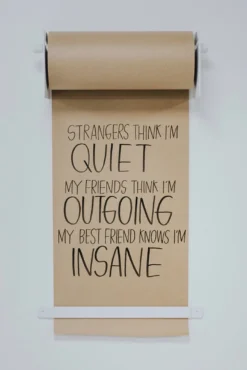 STRANGERS THINK I'M
QUIET
MY FRIENDS THINK I'M
OUTGOING
MY BEST FRIEND KNOWS I'M
INSANE